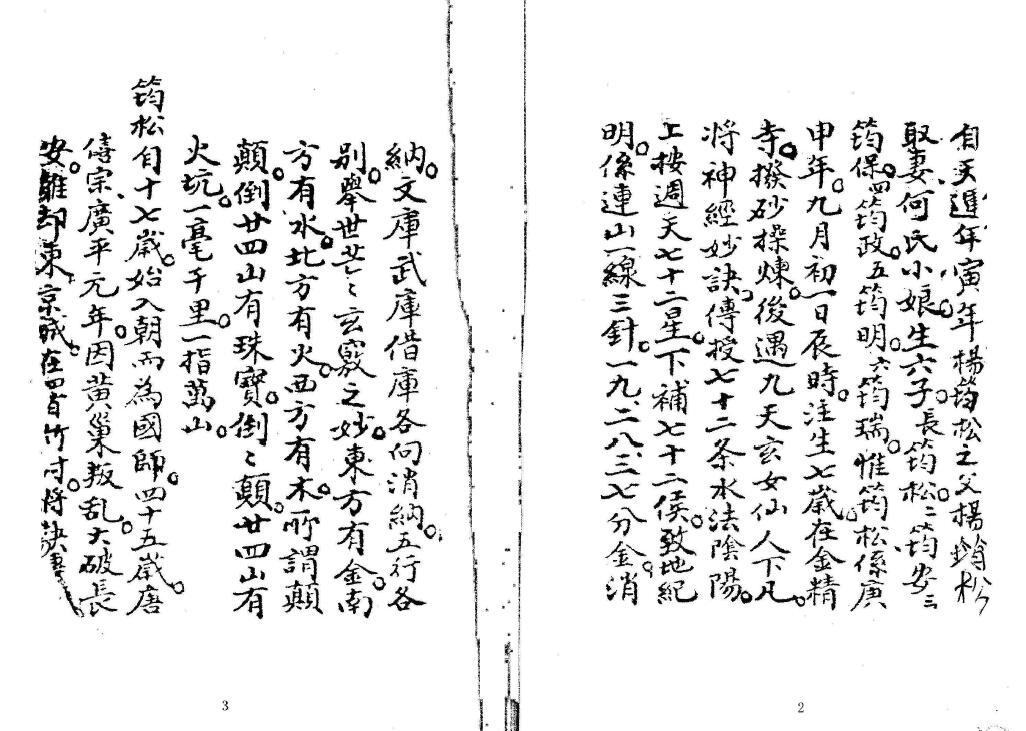 自天進年寅年楊筠松之父楊筠松
取妻何氏小娘生六子長筠松二筠安三
筠保四筠政五筠明六筠瑞惟筠松係庚
申年九月初一日辰時注生七歲在金精
寺撥砂操煉後遇九天玄女仙人下凡
將神經妙訣傳授七十二条水法陰陽
上按週天七十二星下補七十二侯致地紀
明係連山一線三針一九二八三七分金消
2
納文庫武庫借庫各向消納五行各
別舉世茫〻玄竅之妙東方有金南
方有水北方有火西方有木所謂顛
顛倒廿四山有珠寶倒〻顛廿四山有
火坑一毫千里一指萬山
筠松自十七歲始入朝而為國師四十五歲唐
僖宗廣平元年因黃巢叛乱大破長
安雖却東京城在四百竹寸將訣
3